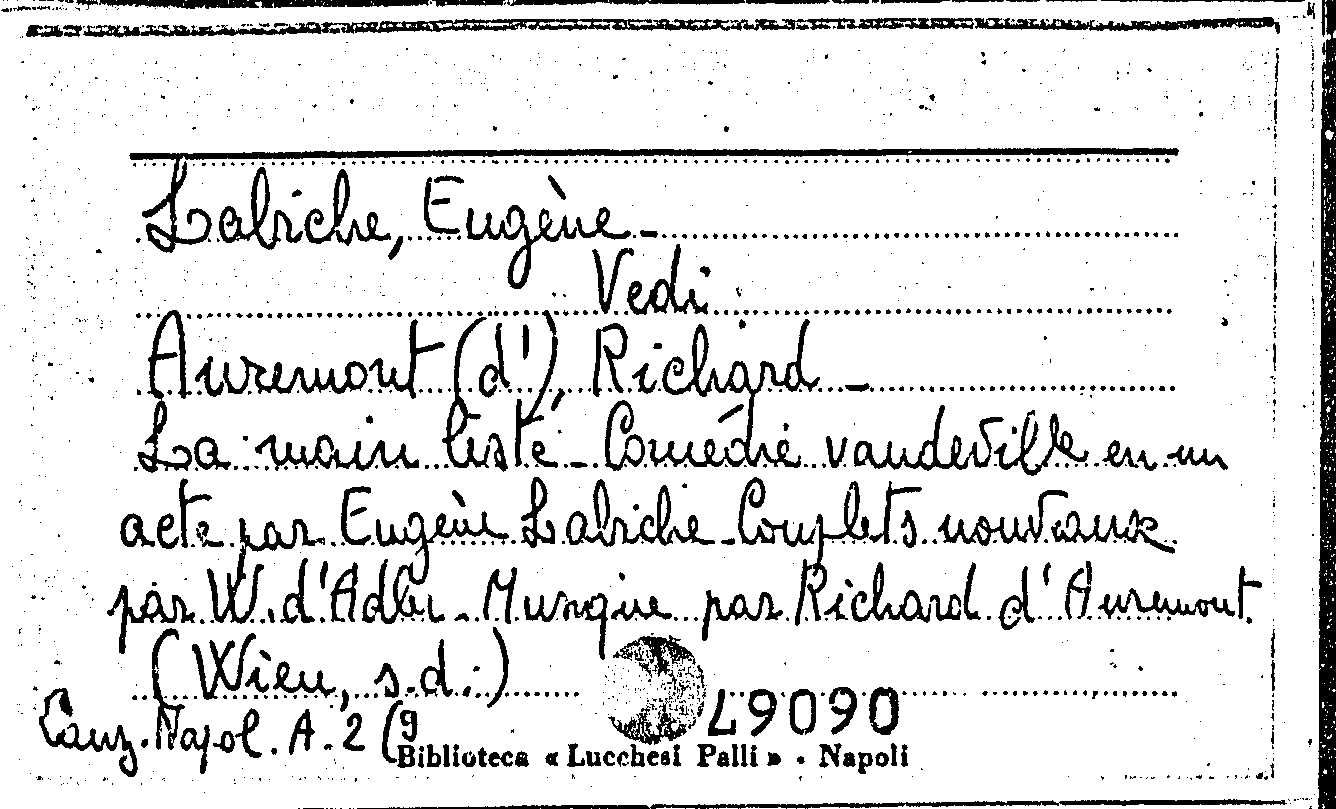 Labiche, Eugène -
Vedi
Auremont (d'), Richard -
La main leste - Comédie vaudeville en un
acte par Eugène Labiche - Couplets nouveaux
par W. d'Adler - Musique par Richard d'Auremont
(Wien, s.d.)
49090
Canz. Napol. A. 2 (9
Biblioteca « Lucchesi Palli » - Napoli